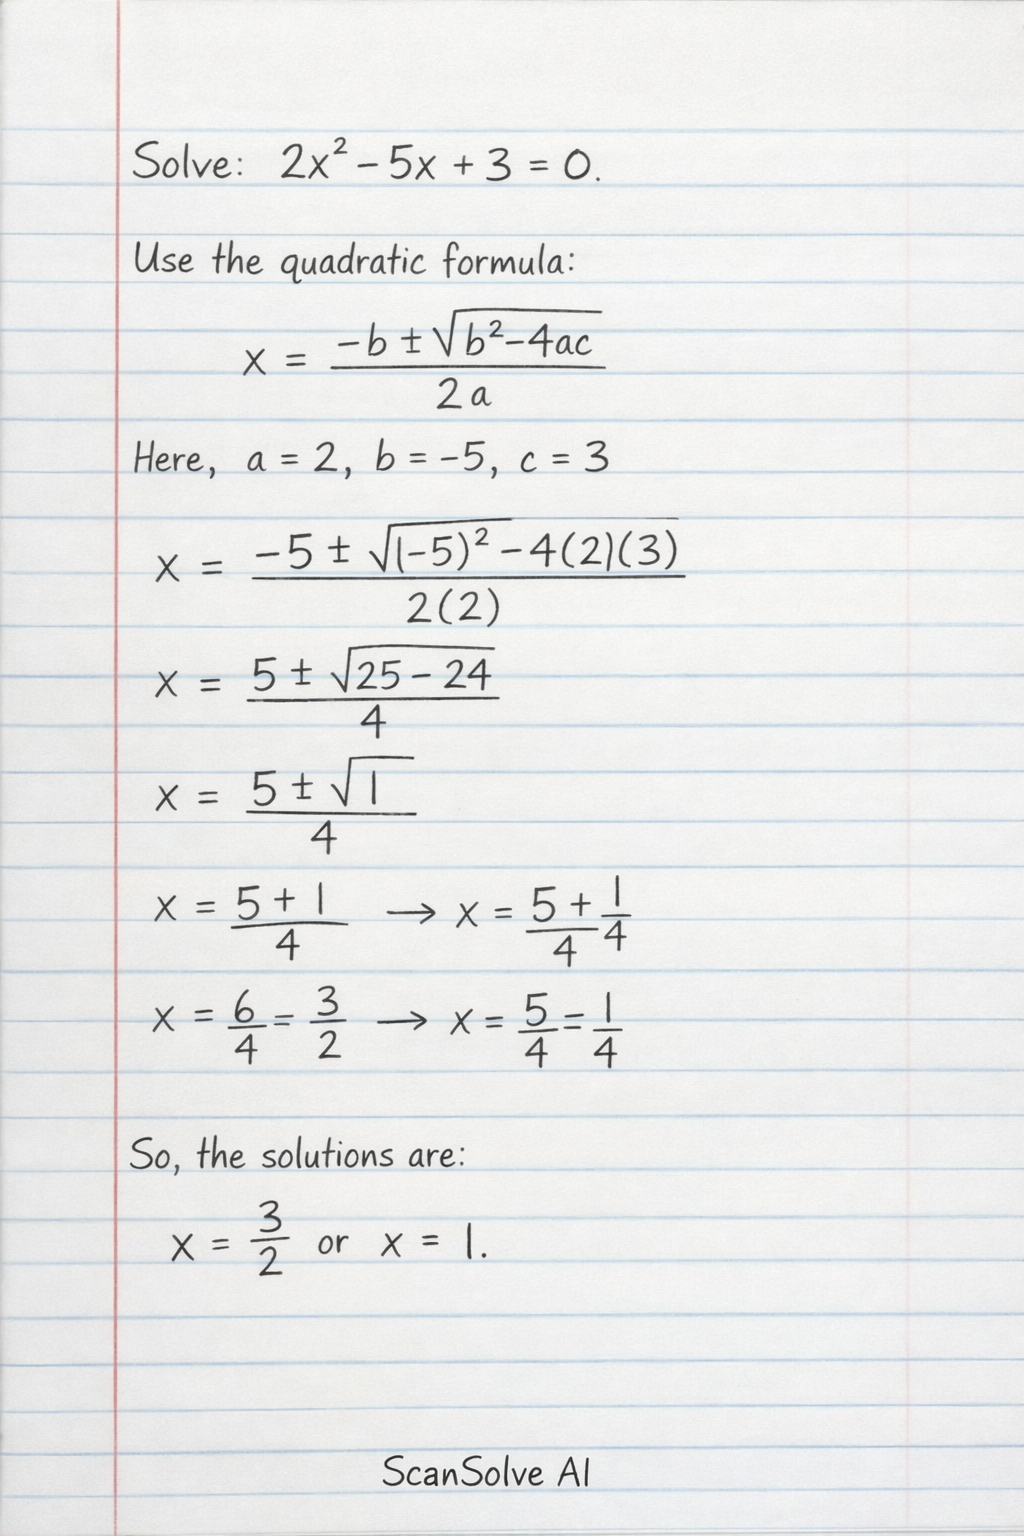 Solve: 2x² - 5x + 3 = 0.
Use the quadratic formula:
x = (-b ± √(b²-4ac)) / (2a)
Here, a = 2, b = -5, c = 3
x = (-5 ± √((-5)² - 4(2)(3))) / (2(2))
x = (5 ± √(25 - 24)) / 4
x = (5 ± √1) / 4
x = (5 + 1) / 4 → x = 5/4 + 1/4
x = 6/4 = 3/2 → x = 5/4 = 1/4
So, the solutions are:
x = 3/2 or x = 1.
ScanSolve AI